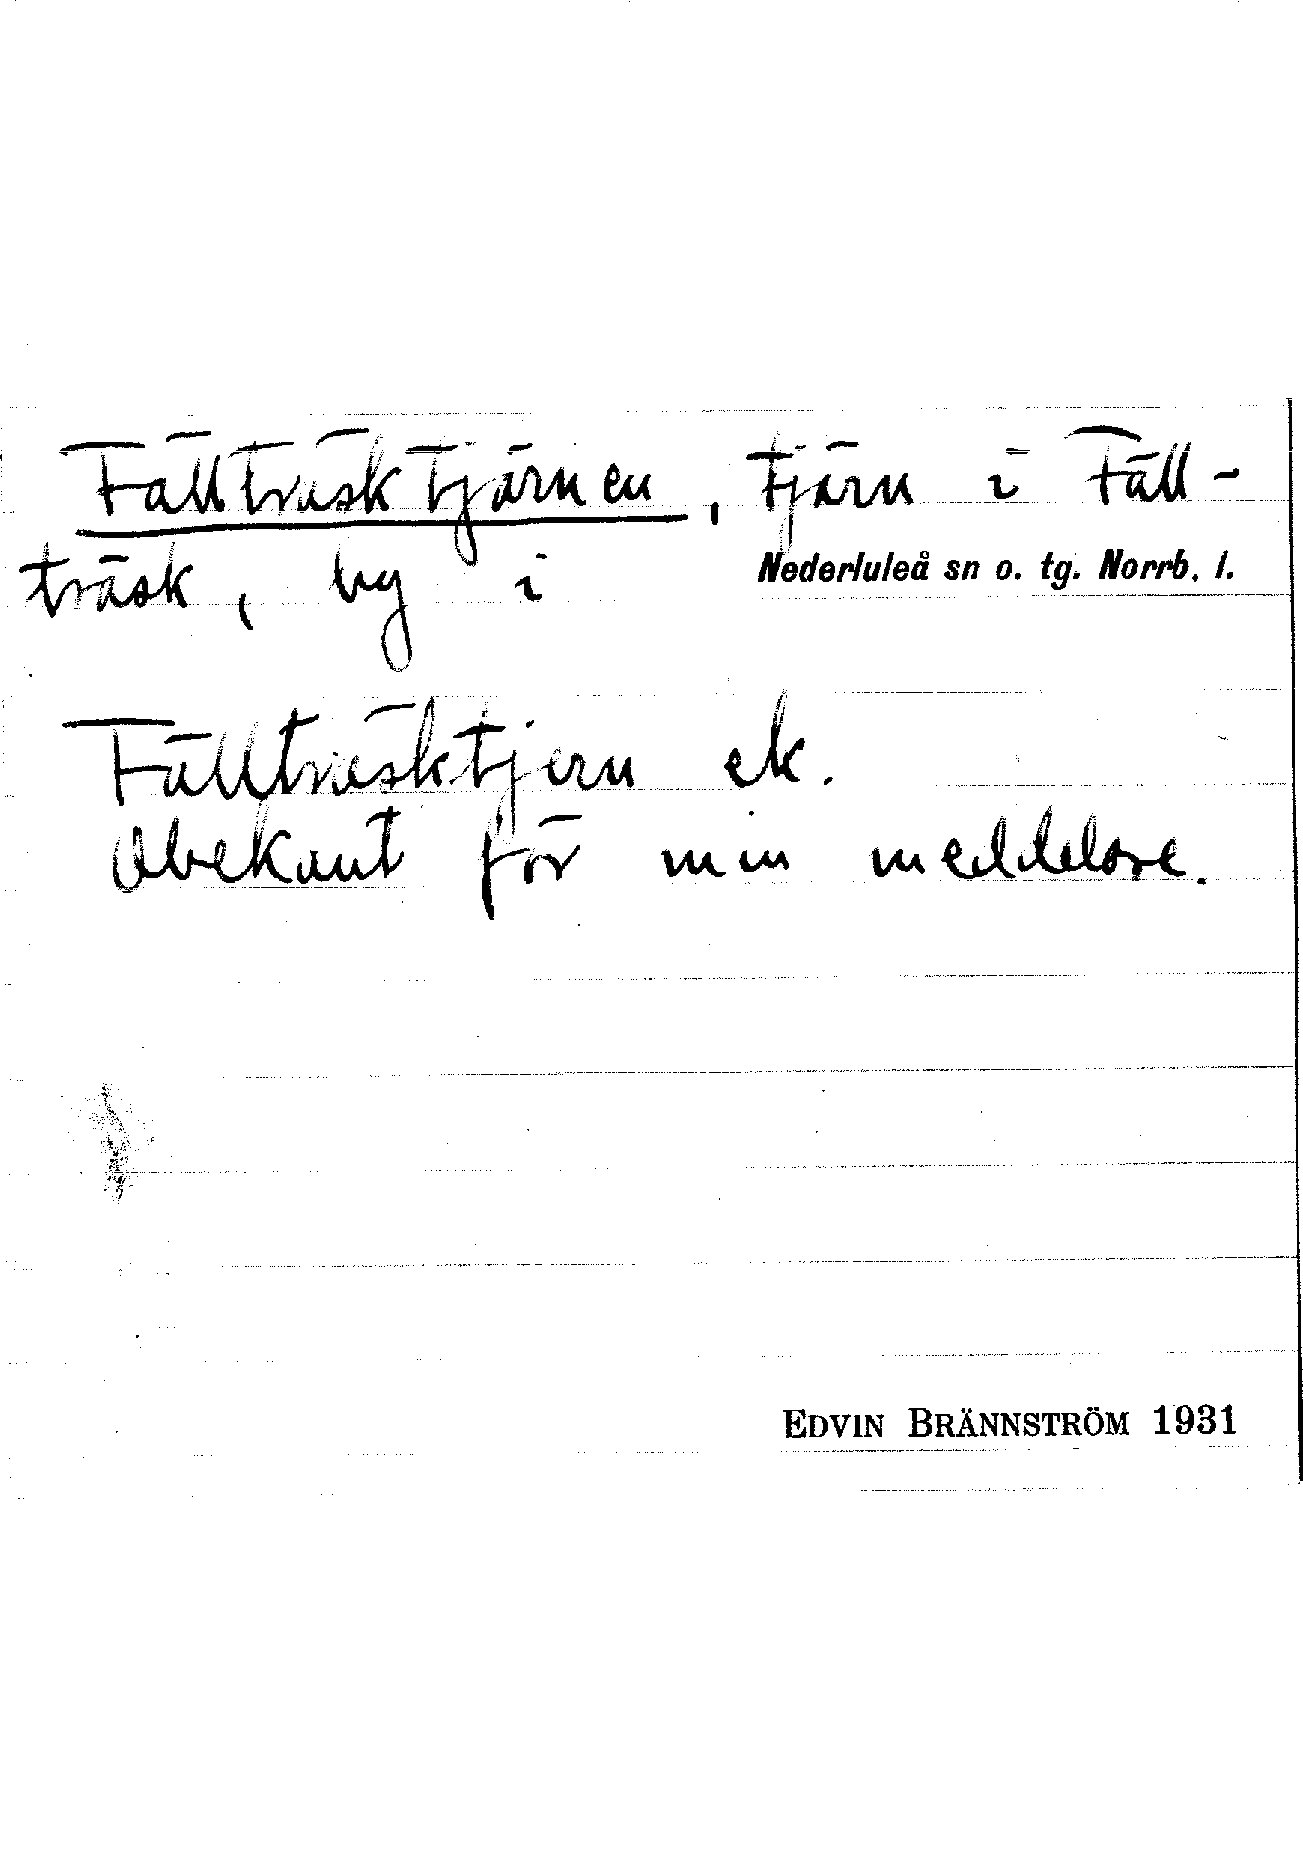 Fällträsktjärnen, tjärn i Fäll-
träsk, by i Nederluleå sn o. tg. Norrb. l.
Fällträsktjern ek.
Obekant för min meddelare.
EDVIN BRÄNNSTRÖM 1931